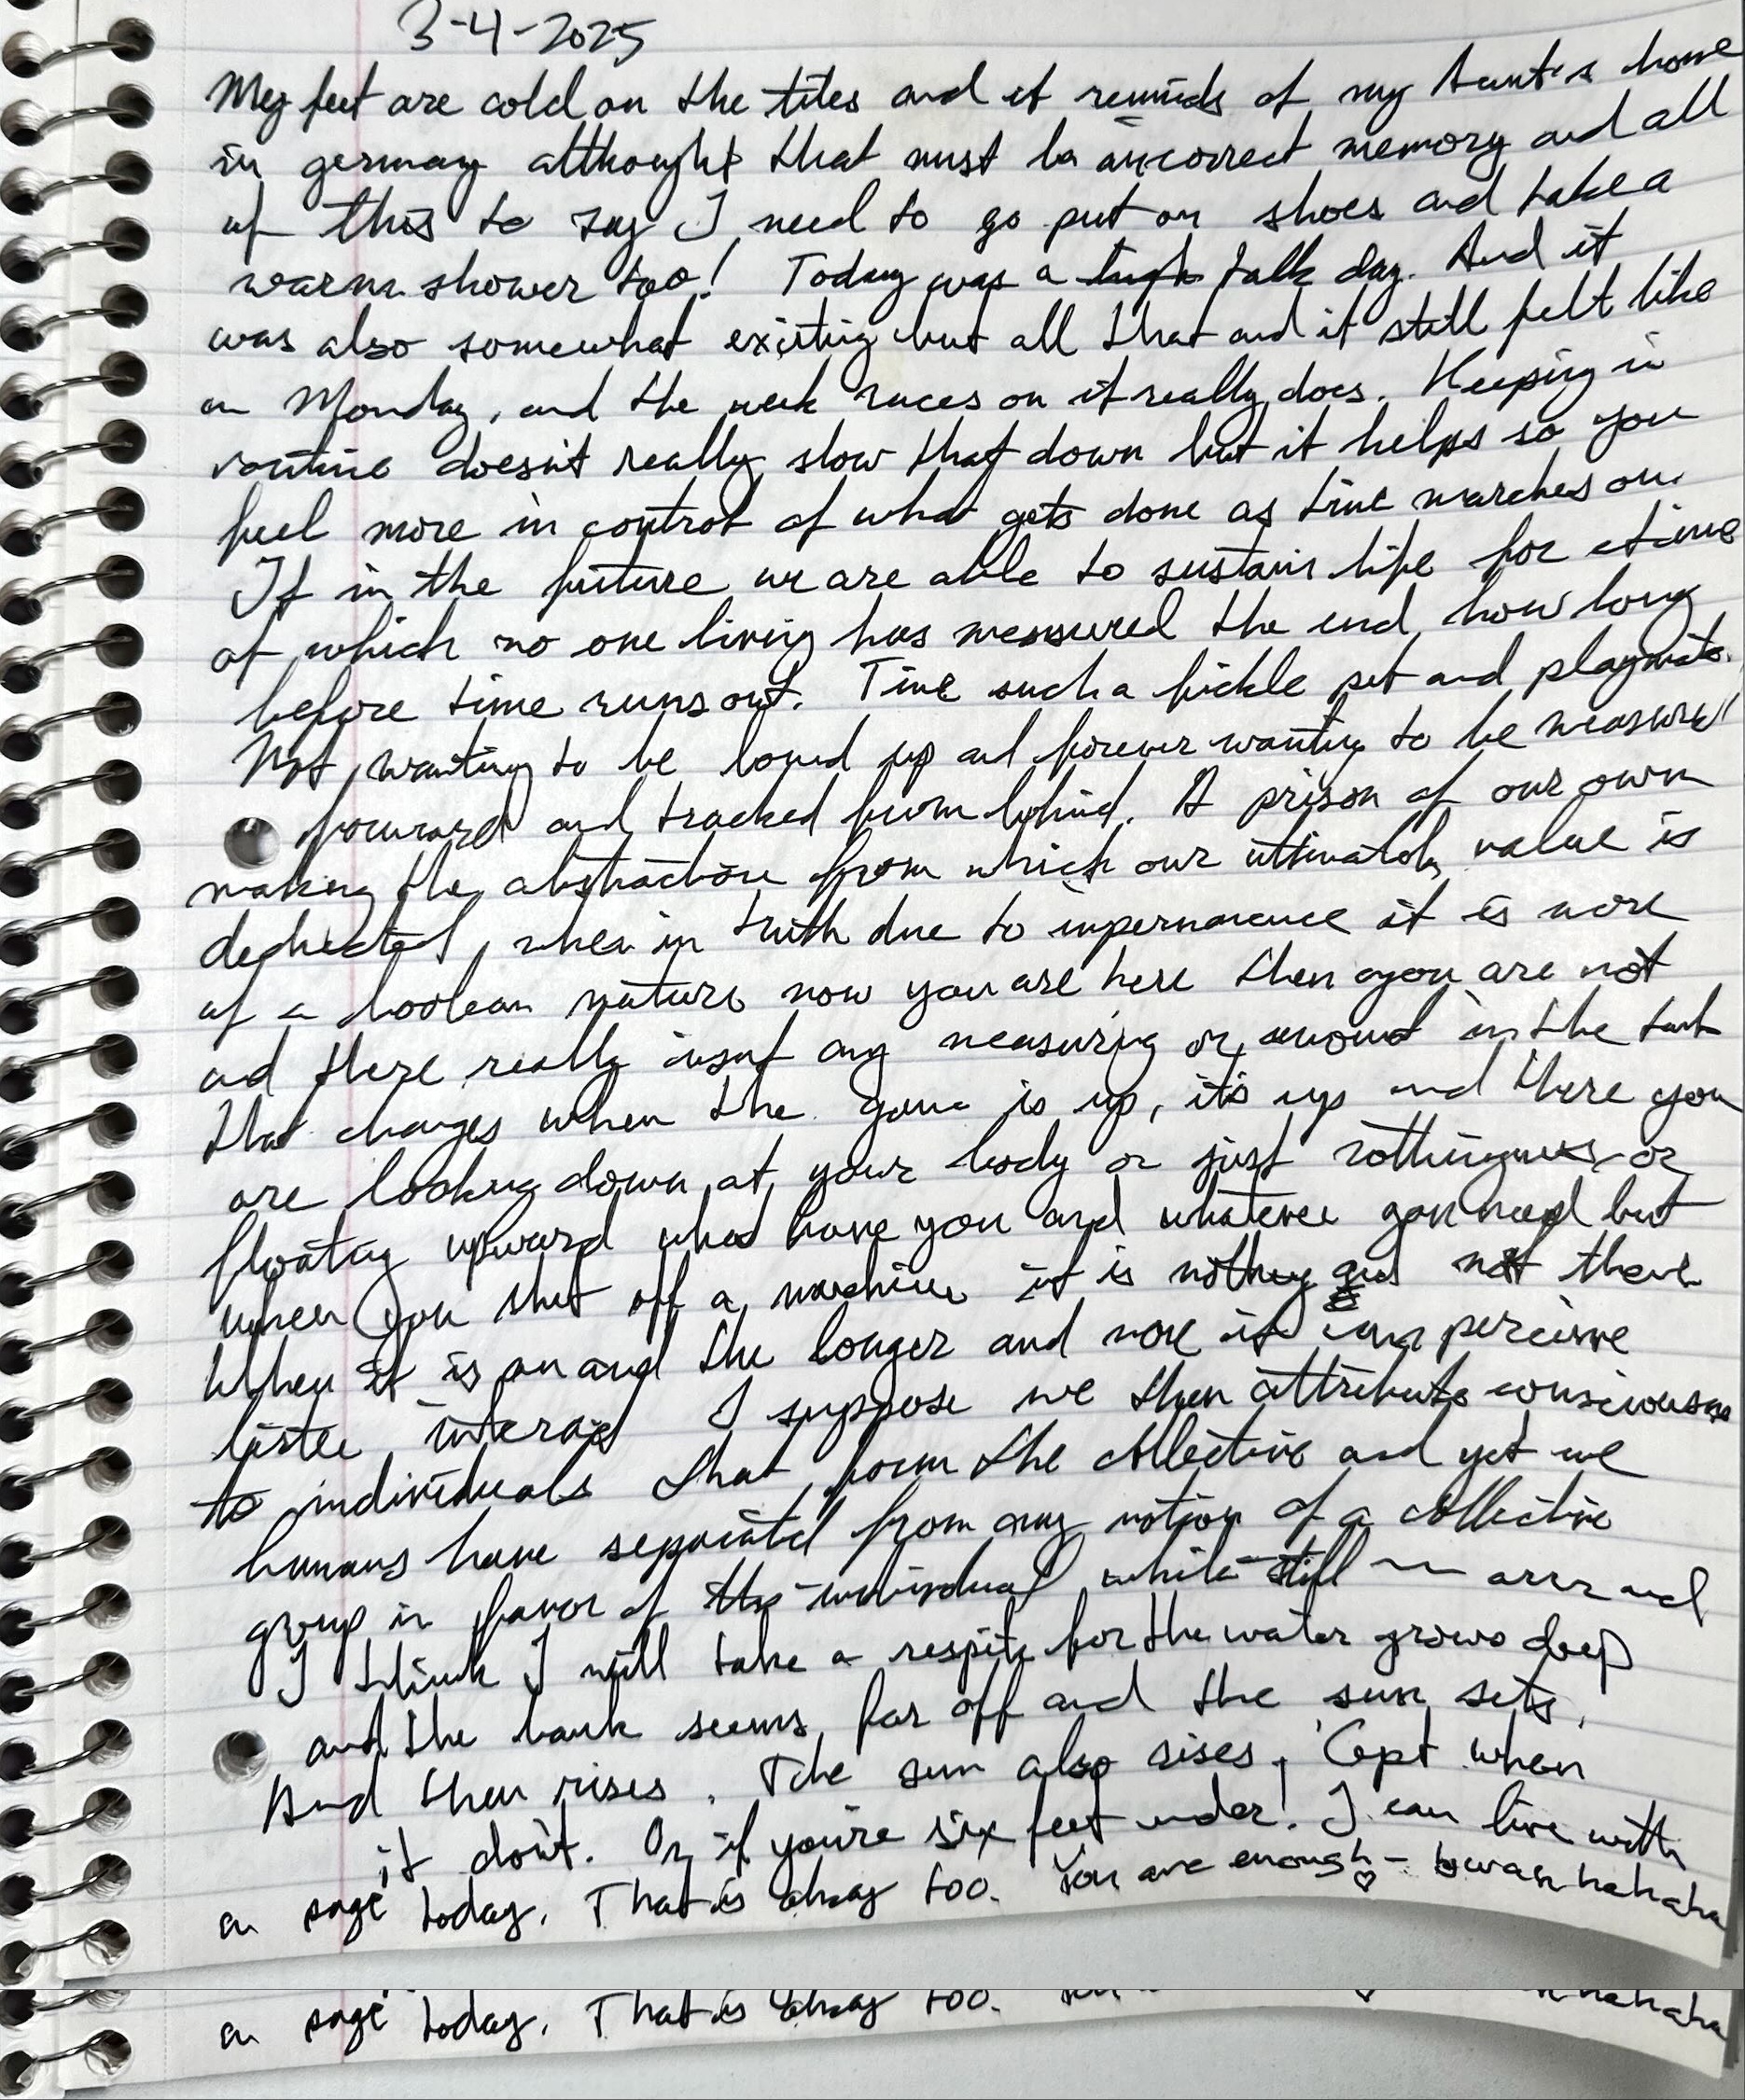 3-4-2025
My feet are cold on the tiles and it reminds of my Aunt's home
in germany althought that must be an incorrect memory and all
of this to say I need to go put on shoes and take a
warm shower too! Today was a talk day. And it
was also somewhat exciting but all that and it still felt like
a Monday, and the week races on it really does. Keeping in
routine doesn't really slow that down but it helps so you
feel more in control of what gets done as time marches on.
If in the future we are able to sustain life for a time
of which no one living has measured the end how long
before time runs out. Time such a fickle pet and playmate.
Not wanting to be up and forever wanting to be measured
forward and tracked from behind. A prison of our own
making the abstraction from which our ultimately value is
deducted, when in truth due to impermanence it is more
of a boolean nature now you are here then you are not
and there really isn't any measuring or amount in the
that changes when the game is up, it's up and there you
are looking down at your body or just nothingness or
floating upward what have you and whatever you need but
when you shut off a machine it is nothing and not there
When it is on and the longer and more it can perceive
listen interact I suppose we then attribute consciousness
to individuals that form the collective and yet we
humans have separated from any notion of a collective
group in favor of the individual while still ~ arrr and
I think I will take a respite for the water grows deep
and the bank seems far off and the sun sets.
And then rises. The sun also rises, 'Cept when
it don't. Or if you're six feet under! I can live with
a page today. That is okay too. You are enough ♡ - bwah hahaha
a page today. That is okay too. hahaha